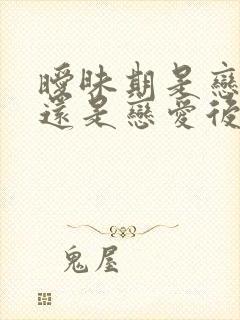 曖昧期是戀
還是戀愛後
鬼屋